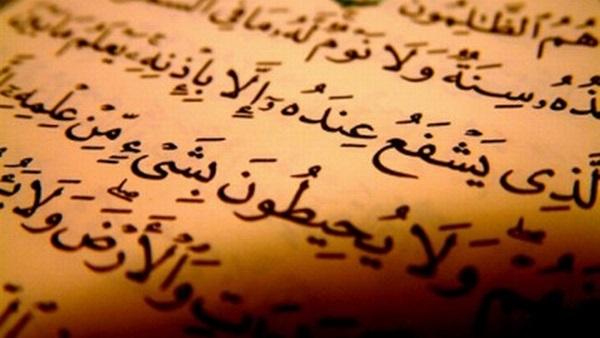 هُمُ ٱلظَّٰلِمُونَ
سِنَةٌ وَلَا نَوْمٌ لَّهُۥ مَا فِى
ٱلَّذِى يَشْفَعُ عِندَهُۥٓ إِلَّا بِإِذْنِهِۦ يَعْلَمُ مَا بَيْنَ
وَلَا يُحِيطُونَ بِشَىْءٍ مِّنْ عِلْمِهِۦٓ
وَٱلْأَرْضَ وَلَا